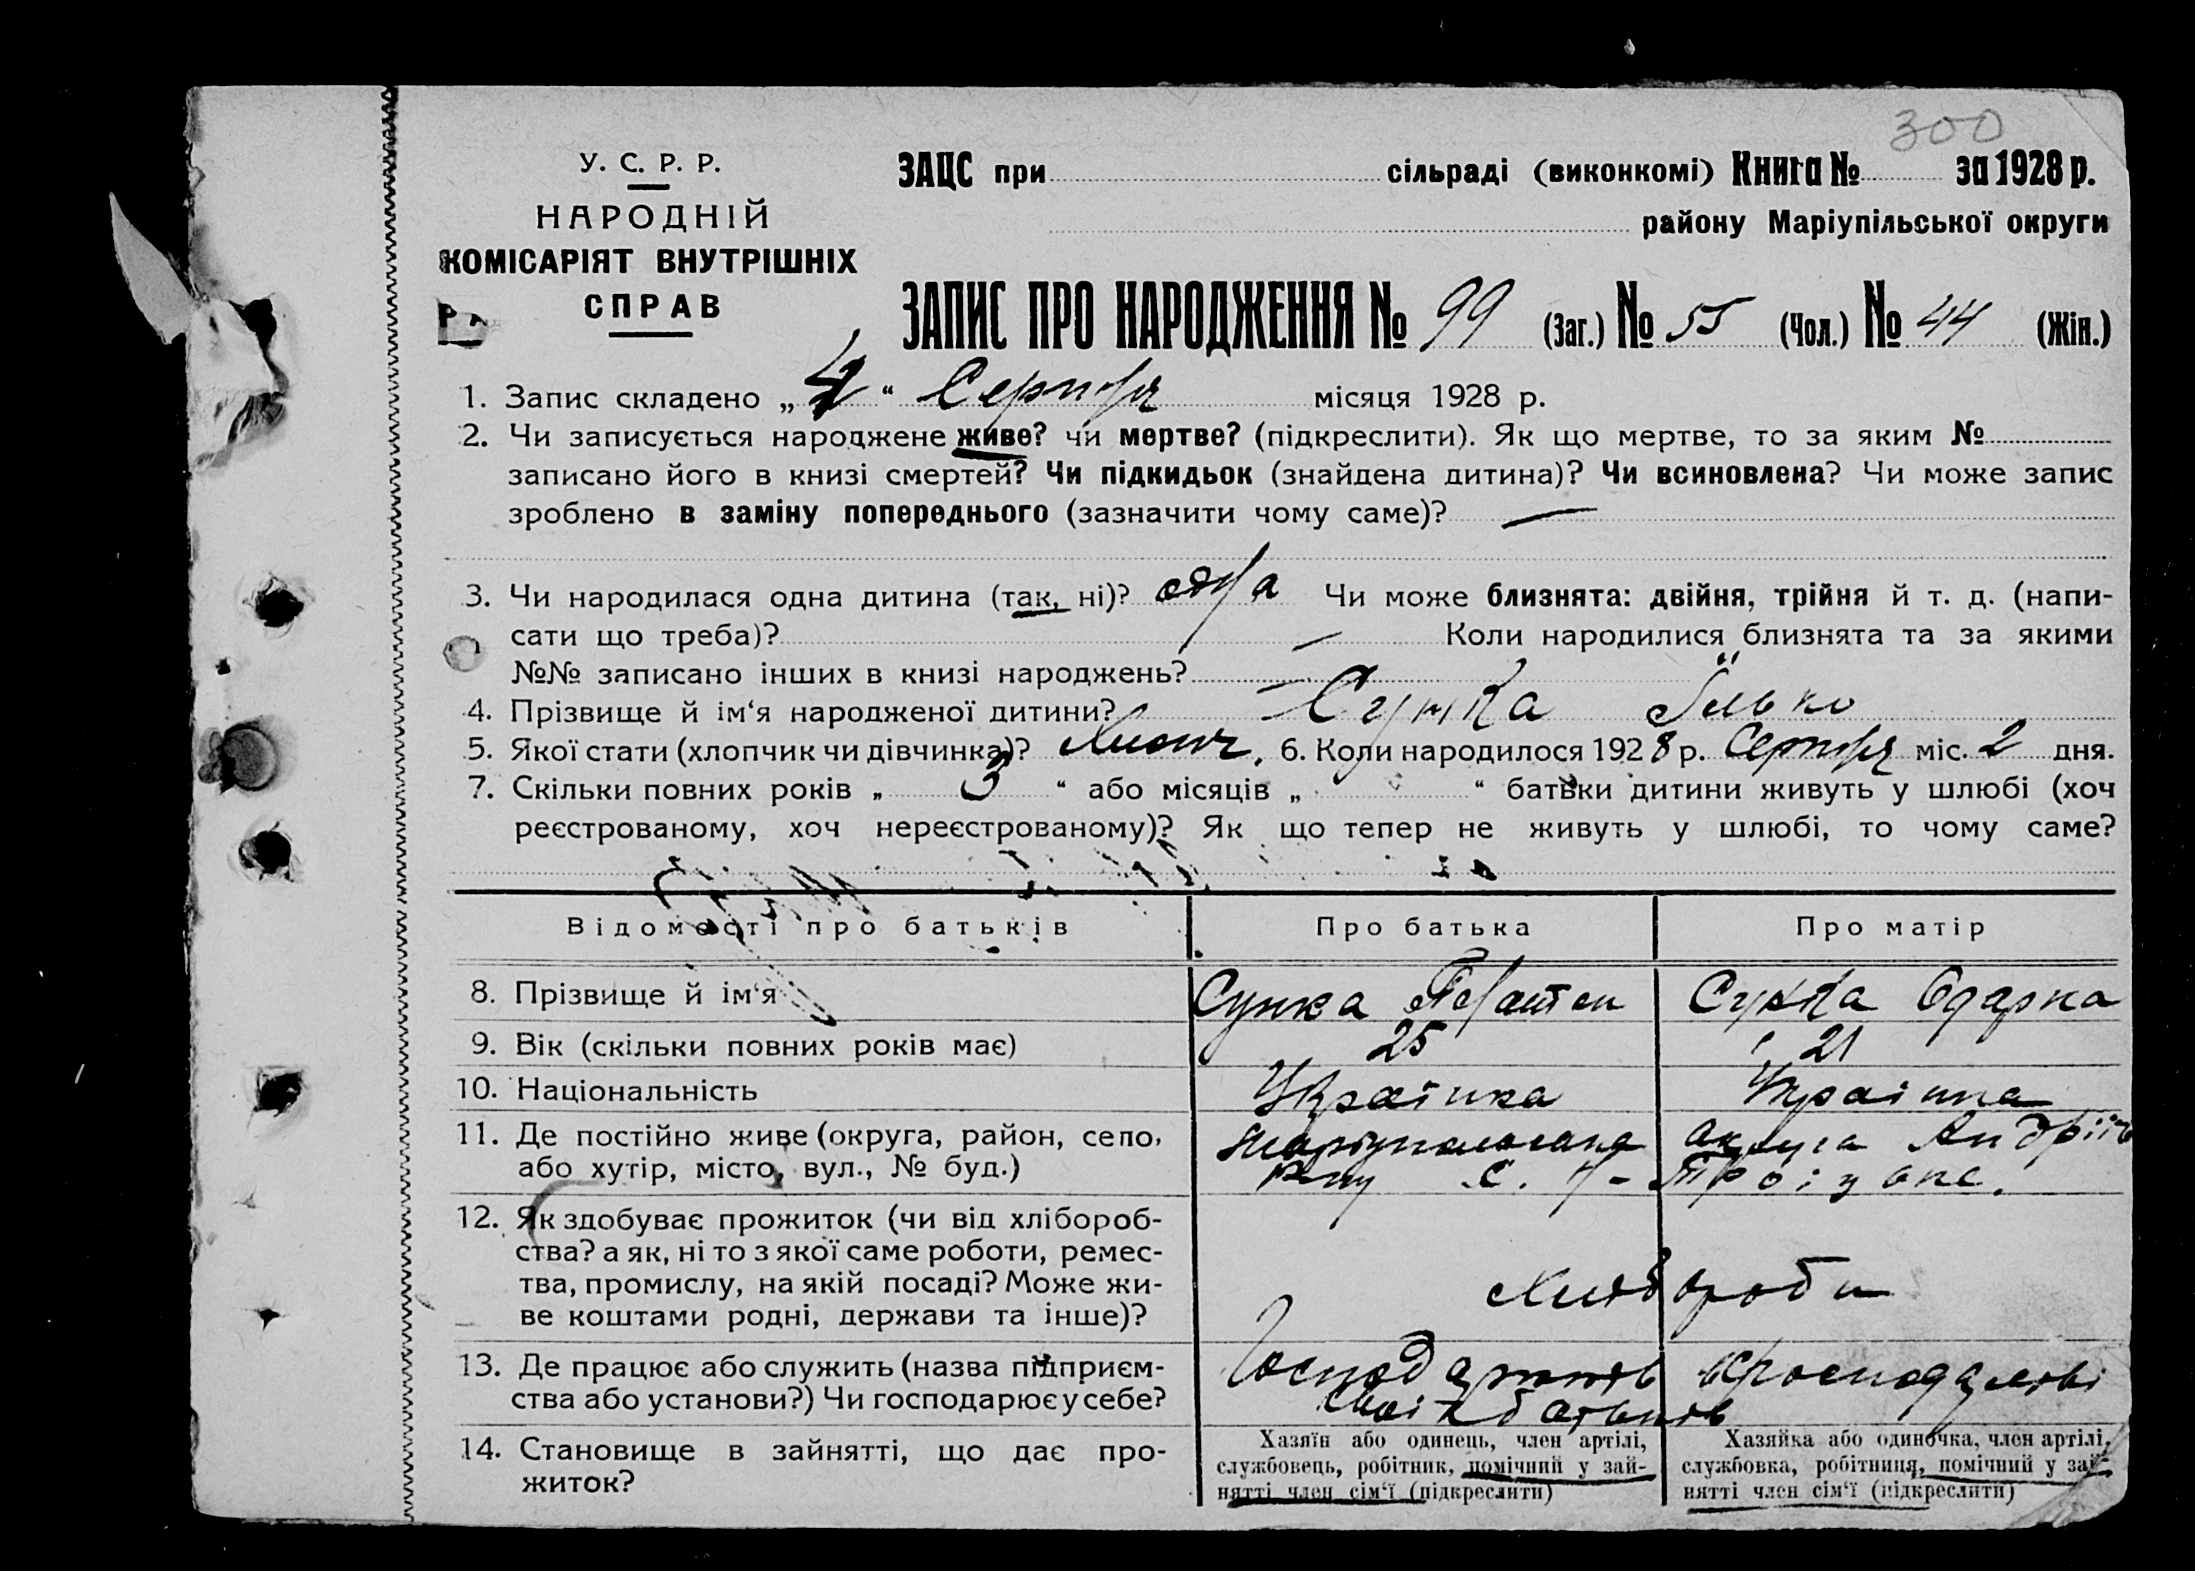 300
У. С. Р. Р.
НАРОДНІЙ
КОМІСАРІЯТ ВНУТРІШНІХ
СПРАВ
ЗАЦС при сільраді (виконкомі) Книга № за 1928 р.
району Маріупільської округи
ЗАПИС ПРО НАРОДЖЕННЯ № 99 (Заг.) № 55 (Чол.) № 44 (Жін.)
1. Запис складено „ 4 “ Серпня місяця 1928 р.
2. Чи записується народжене живе? чи мертве? (підкреслити). Як що мертве, то за яким №
записано його в книзі смертей? Чи підкидьок (знайдена дитина)? Чи всиновлена? Чи може запис
зроблено в заміну попереднього (зазначити чому саме)? —
3. Чи народилася одна дитина (так, ні)? одна Чи може близнята: двійня, трійня й т. д. (напи-
сати що треба)? — Коли народилися близнята та за якими
№№ записано інших в книзі народжень? —
4. Прізвище й ім‘я народженої дитини? Сучка Ілько
5. Якої стати (хлопчик чи дівчинка)? 6. Коли народилося 1928 р. Серпня міс. 2 дня.
7. Скільки повних років „ 3 “ або місяців „ “ батьки дитини живуть у шлюбі (хоч
реєстрованому, хоч нереєстрованому)? Як що тепер не живуть у шлюбі, то чому саме?
Відомості про батьків Про батька Про матір
8. Прізвище й ім‘я Одарка
9. Вік (скільки повних років має) 25 21
10. Національність Українка Українка
11. Де постійно живе (округа, район, село,
або хутір, місто, вул., № буд.)
12. Як здобуває прожиток (чи від хлібороб-
ства? а як, ні то з якої саме роботи, ремес-
тва, промислу, на якій посаді? Може жи-
ве коштами родні, держави та інше)?
Хлібороби
13. Де працює або служить (назва підприєм-
ства або установи?) Чи господарює у себе?
14. Становище в зайнятті, що дає про-
житок?
Хазяїн або одинець, член артілі,
службовець, робітник, помічний у зай-
нятті член сім‘ї (підкреслити)
Хазяйка або одиночка, член артілі,
службовка, робітниця, помічний у зай-
нятті член сім‘ї (підкреслити)